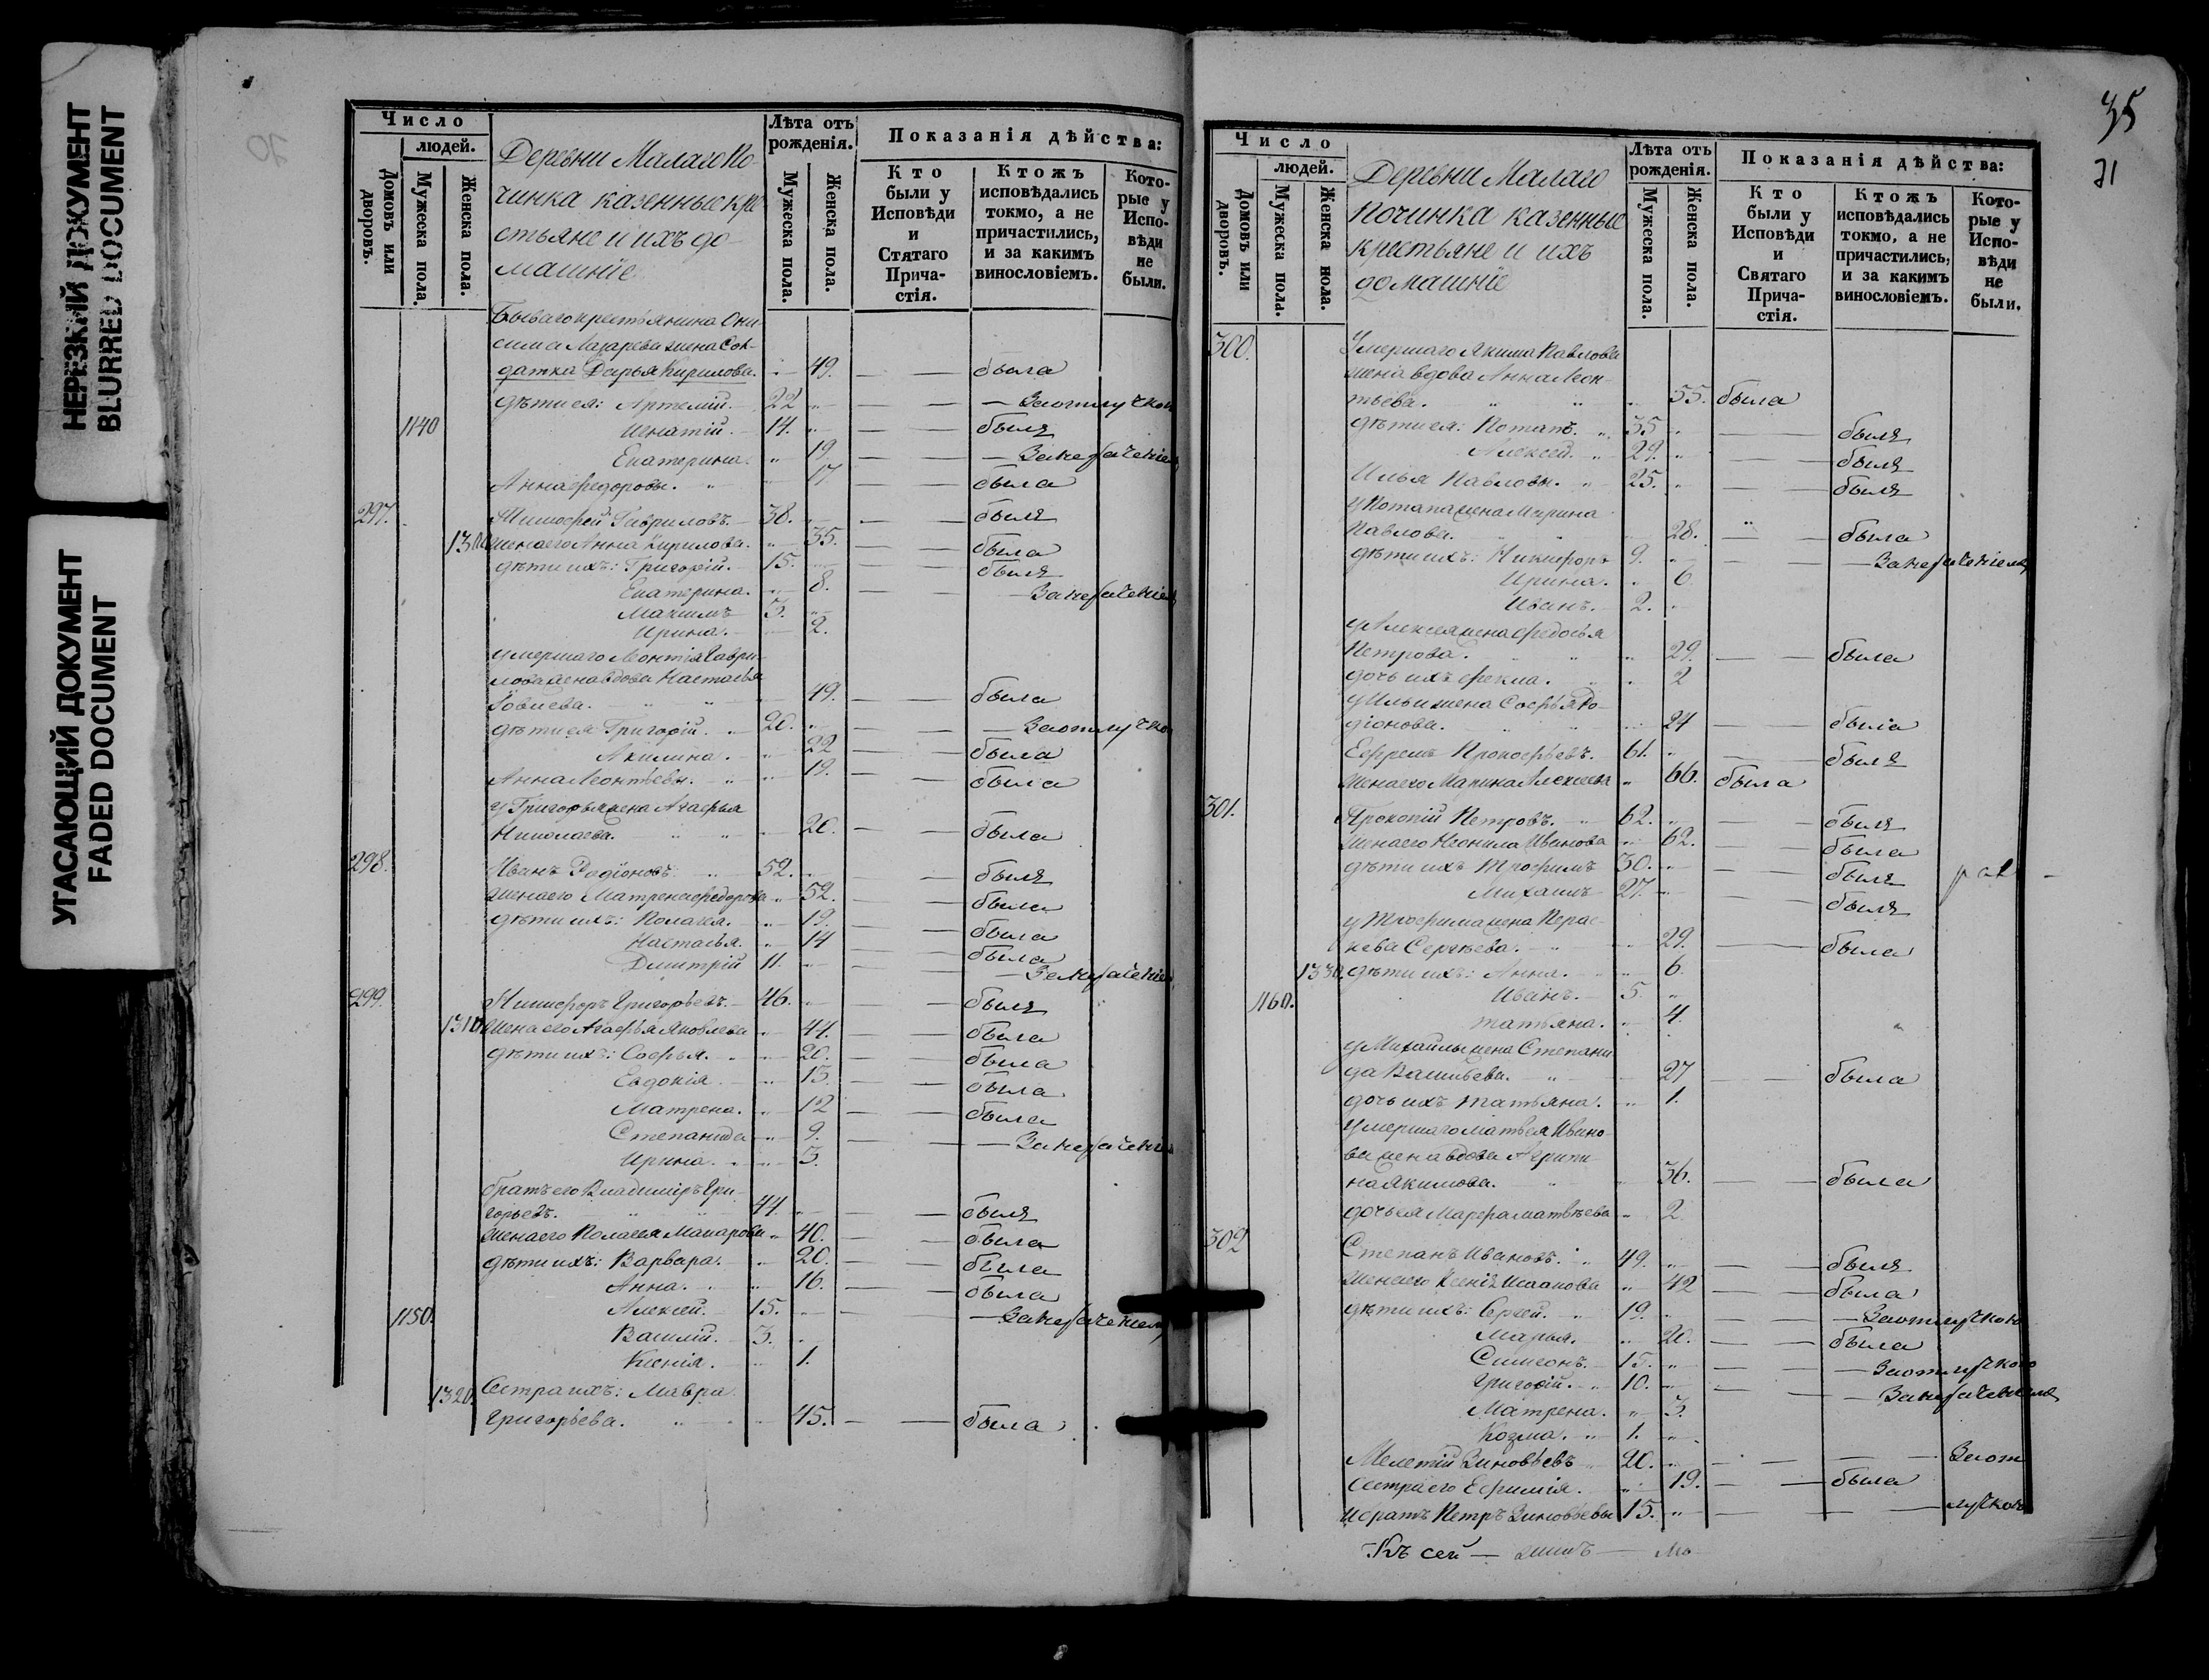 НЕРЕЗКИЙ ДОКУМЕНТ
BLURRED DOCUMENT
УГАСАЮЩИЙ ДОКУМЕНТ
FADED DOCUMENT
Число
людей.
Домовъ или дворовъ.
Мужеска пола.
Женска пола.
Деревни Малаго По-
чинка казенные кре
стьяне и ихъ до-
машніе
Лѣта отъ рожденія.
Мужеска пола.
Женска пола.
Показанія дѣйства:
Кто были у Исповѣди и Стятаго Прича-стія.
Ктожъ исповѣдались токмо, а не причастились, и за какимъ винословіемъ.
Кото-рые у Испо-вѣди не были.
Бываго крестьянина Они-
сима Лазарева жена Сол-
датка Дарья Кирилова. 49. была
дѣти ея: Артемій. 22 За отлучкою
1140 Игнатій. 14. былъ
Екатерина. 19.
Анна Федоровы. 17 была
297. Тимофей Гавриловъ. 38. былъ
жена его Анна Кирилова. 35. была
дѣти ихъ: Григорій. 15. былъ
Екатерина. 8.
Максимъ 3.
Ирина. 2.
умершаго Леонтія Гаври-
лова жена вдова Настасья
49. была
дѣти ея Григорій. 20. За отлучкою
Акилина. 22 была
Анна Леонтьевы. 19. была
у Григорья жена Агафья
Николаева. 20. была
298. Иванъ Родіоновъ. 52. былъ
жена его Матрена Федорова 52. была
дѣти ихъ: Пелагея. 19. была
Настасья. 14 была
Дмитрій 11.
299. Никифоръ Григорьевъ. 46. былъ
1310 жена его Агафья Яковлева 44. была
дѣти ихъ: Софья. 20. была
Евдокія. 15. была
Матрена. 12 была
Степанида 9.
Ирина. 3.
братъ его Владиміръ Гри-
горьевъ. 44. былъ
жена его Пелагея Макарова 40. была
дѣти ихъ: Варвара. 20. была
Анна. 16. была
1150. Алексей. 15.
Василій. 3.
Ксенія. 1.
1320. Сестра ихъ: Мавра
Григорьева. 45. была
35
71
Число
людей.
Домовъ или дворовъ.
Мужеска пола.
Женска пола.
Деревни Малаго
Починка казенные
крестьяне и ихъ
домашніе
Лѣта отъ рожденія.
Мужеска пола.
Женска пола.
Показанія дѣйства:
Кто были у Исповѣди и Святаго Прича-стія.
Ктожъ исповѣдались токмо, а не причастились, и за какимъ винословіемъ.
Кото-рые у Испо-вѣди не были.
300. Умершаго Якима Павлова
жена вдова Анна Леон-
тьева. 55. была
дѣти ея: Потапъ. 35 былъ
Алексей. 29. былъ
Илья Павловы. 25. былъ
у Потапа жена Марина
Павлова. 28. была
дѣти ихъ: Никифоръ 9.
Ирина. 6.
Иванъ. 2.
у Алексея жена Федосья
Петрова. 29. была
дочь ихъ Фекла. 2
у Ильи жена Софья Ро-
діонова. 24 была
Ефремъ Прокофьевъ. 61. былъ
жена его Марина Алексеева 66. была
301. Прокопій Петровъ. 62. былъ
жена его Неонила Иванова 62. была
дѣти ихъ Трофимъ 30. былъ
Михаилъ 27. былъ
у Трофима жена Парас-
кева Сергѣева. 29. была
1330. дѣти ихъ: Анна. 6.
1160. Иванъ. 5.
Татьяна. 4.
у Михайлы жена Степани
да Васильева. 27 была
дочь ихъ Татьяна. 1.
Умершаго Матвея Ивано-
ва жена вдова Агрипи-
на Якимова. 36. была
дочь ея Марфа Матвѣева 2.
302 Степанъ Ивановъ. 49. былъ
жена его Ксенія 42 была
дѣти ихъ: 19. За отлучкою
Марья. 20. была
Симеонъ. 15. За отлучкою
Григорій. 10.
Матрена. 3.
Козма. 1.
Мелетій Зиновьевъ 20. За от
Сестра его Ефимія. 19. была
и братъ Петръ Зиновьевы 15. лучкою
Къ сей